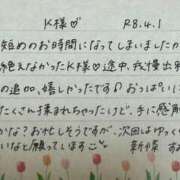 K様♡ R8.4.1
短めのお時間になってしまいましたが
絶えなかったK様♡途中、我慢出
の追加、嬉しかったです♪おっ
たくさん揉まれちゃったけど、手に感触
かな？お忙しそうですが、次回はゆっく
いなと願ってします
新横